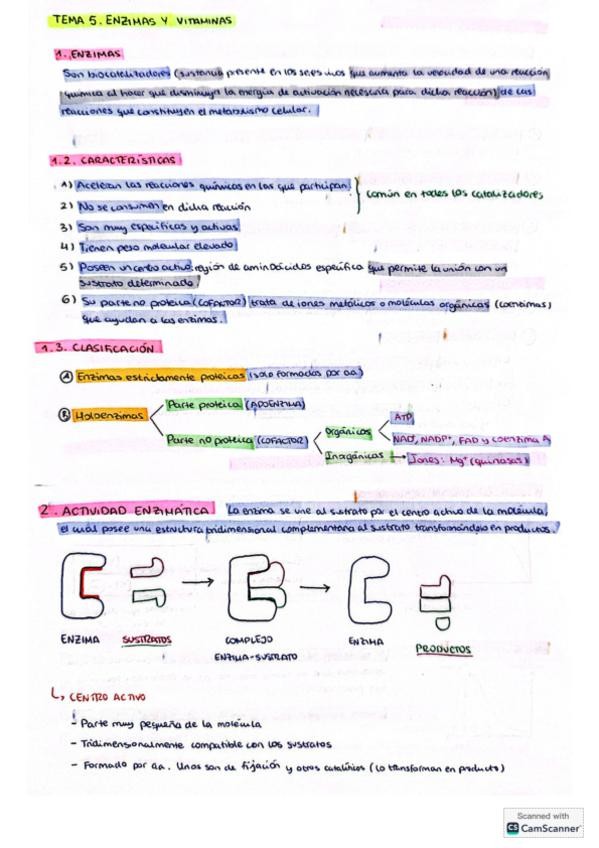 TEMA 5. ENZIMAS Y VITAMINAS
1. ENZIMAS
Son biocatalizadores (sustancia presente en los seres vivos que aumenta la velocidad de una reacción
química al hacer que disminuya la energía de activación necesaria para dicha reacción) de las
reacciones que constituyen el metabolismo celular.
1.2. CARACTERÍSTICAS
1) Aceleran las reacciones químicas en las que participan.
2) No se consumen en dicha reacción
común en todos los catalizadores
3) Son muy específicas y activas
4) Tienen peso molecular elevado
5) Poseen un centro activo: región de aminoácidos específica que permite la unión con un
sustrato determinado
6) Su parte no proteica (COFACTOR) trata de iones metálicos o moléculas orgánicas (coenzimas)
que ayudan a las enzimas.
1.3. CLASIFICACIÓN
A Enzimas estrictamente proteicas (solo formadas por aa.)
B Holoenzimas
Parte proteica (APOENZIMA)
Parte no proteica (COFACTOR)
Orgánicos
ATP
NAD, NADP+, FAD y coenzima A
Inorgánicos → Iones: Mg+ (quinasas)
2. ACTIVIDAD ENZIMÁTICA La enzima se une al sustrato por el centro activo de la molécula,
el cual posee una estructura tridimensional complementaria al sustrato transformándolo en productos.
ENZIMA SUSTRATOS COMPLEJO ENZIMA PRODUCTOS
ENZIMA-SUSTRATO
CENTRO ACTIVO
- Parte muy pequeña de la molécula
- Tridimensionalmente compatible con los sustratos
- Formado por aa. Unos son de fijación y otros catalíticos (lo transforman en producto)
Scanned with
CS CamScanner